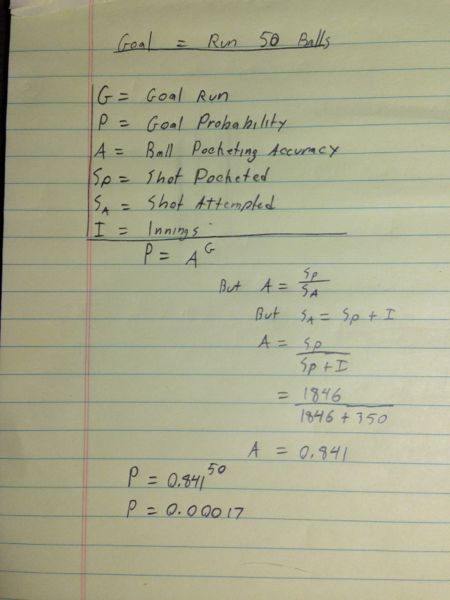 Goal = Run 50 Balls
G = Goal Run
P = Goal Probability
A = Ball Pocketing Accuracy
Sp = Shot Pocketed
SA = Shot Attempted
I = Innings
P = A^G
But A = Sp/SA
But SA = Sp + I
A = Sp/Sp+I
= 1846/1846+350
A = 0.841
P = 0.841^50
P = 0.00017